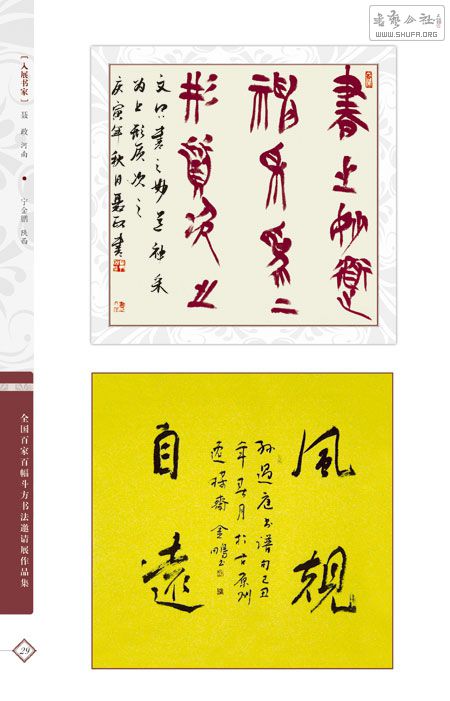 書藝公社
WWW.SHUFA.ORG
[入展书家] 聂政 河南 • 宁金鹏 陕西
全国百家百幅斗方书法邀请展作品集
29
書之妙道
神采為上
形質次之
文曰書之妙道神采
为上形质次之
庚寅年秋日聂政書
風規
自遠
孙过庭书谱句己丑
年春月於古原州
斋金鹏书